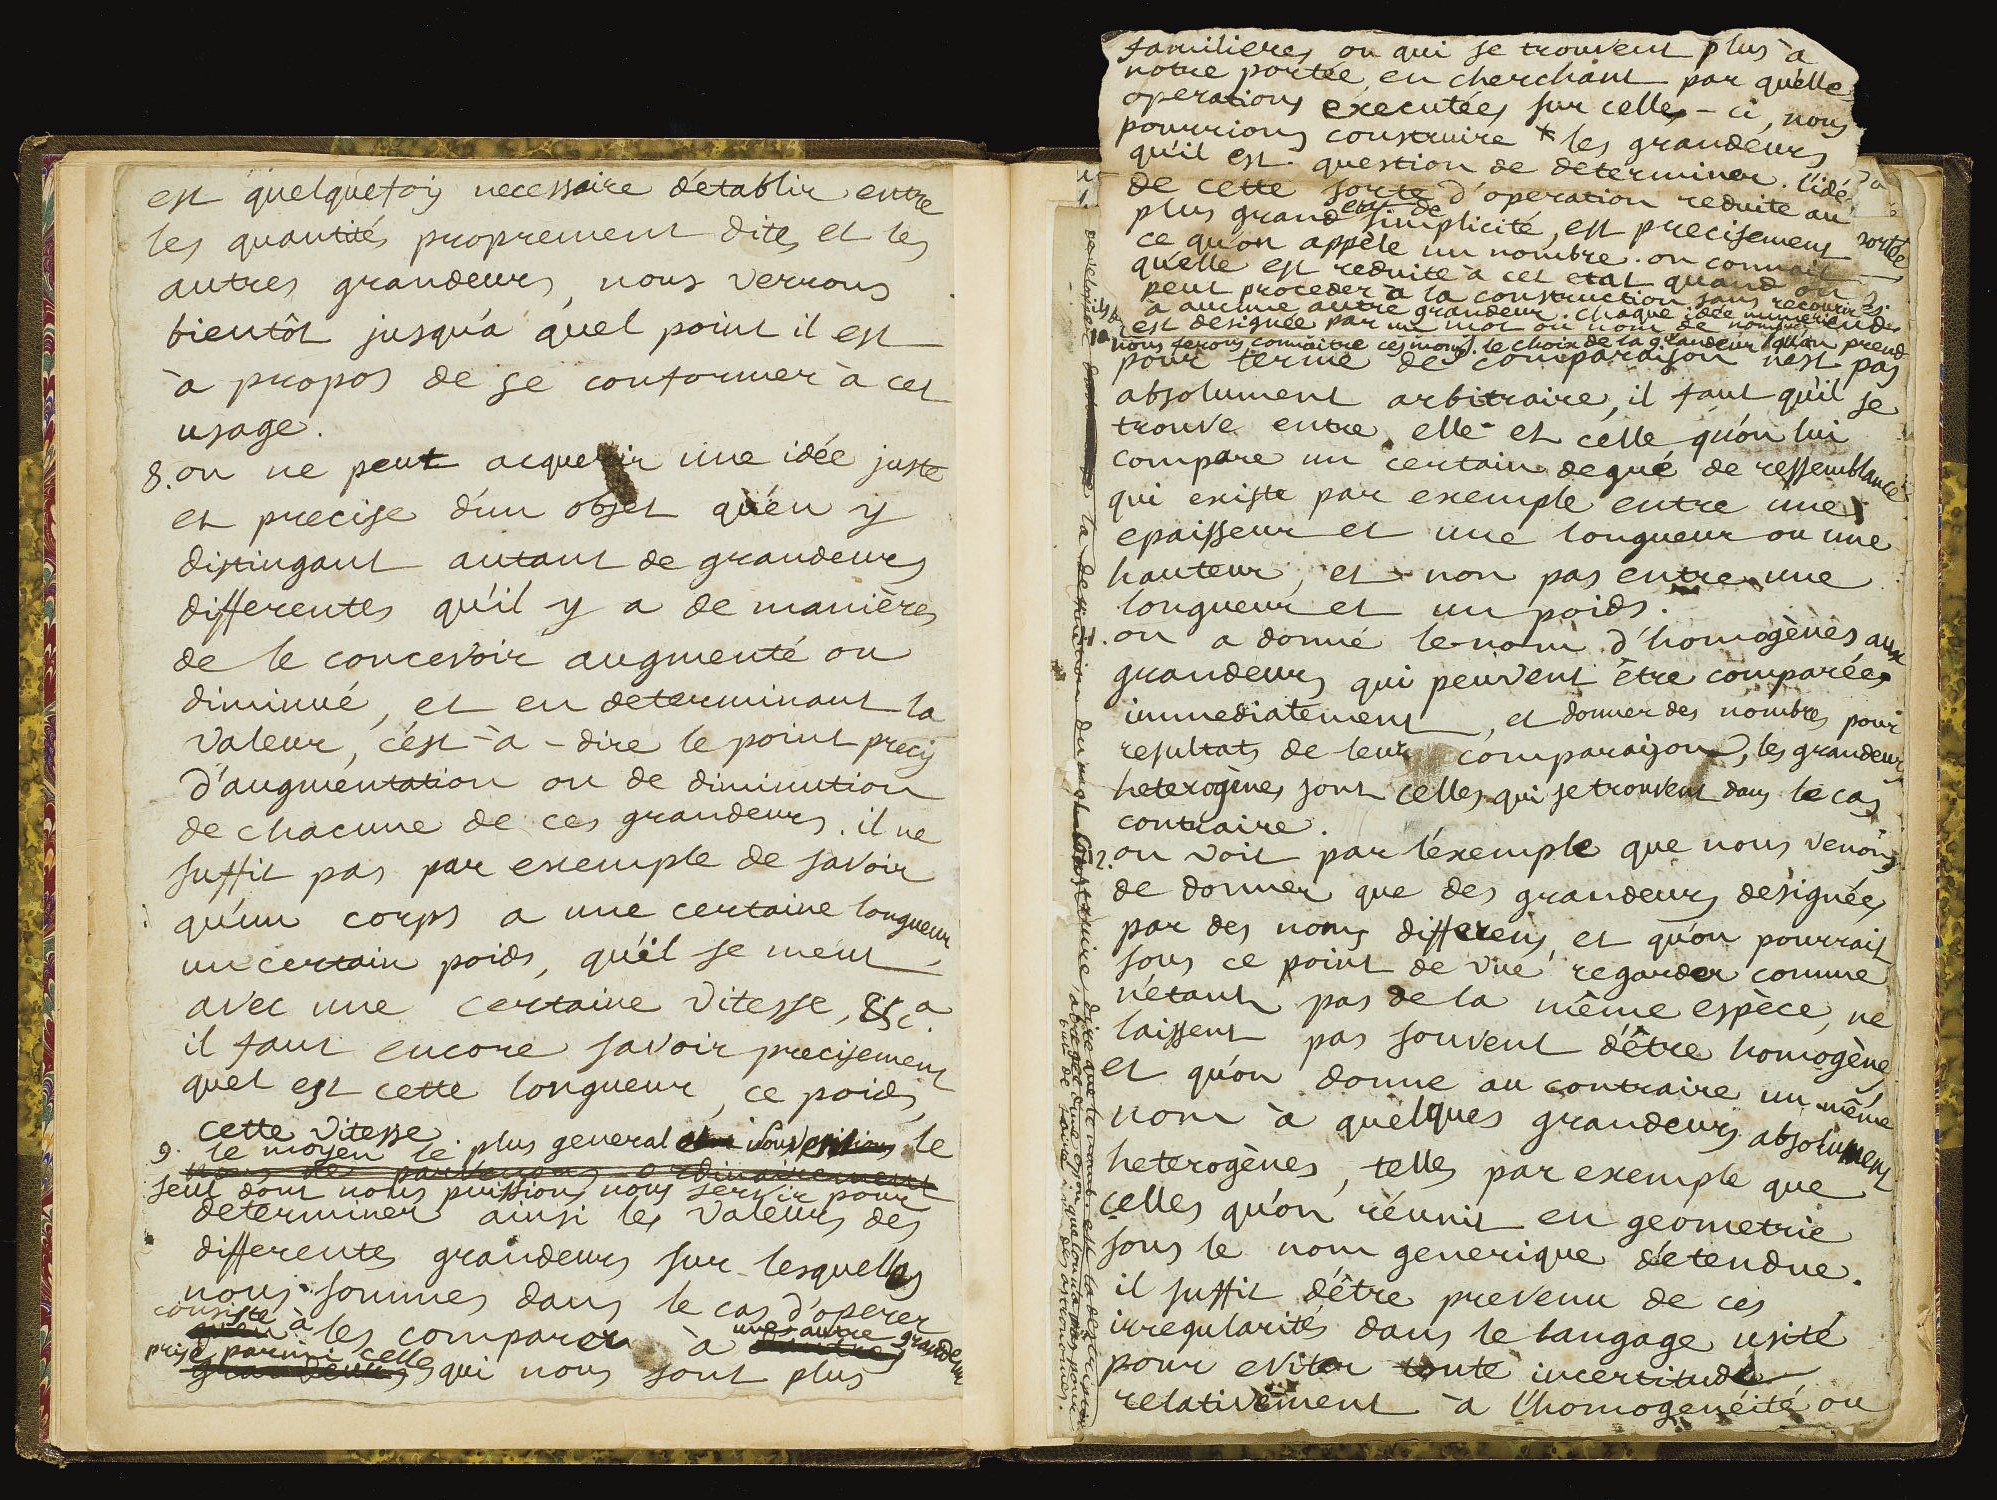 est quelquefois necessaire d'etablir entre
les quantités proprement dites et les
autres grandeurs, nous verrons
bientôt jusqu'a quel point il est
à propos de se conformer à cet
usage.
8. on ne peut acquerir une idée juste
et precise d'un objet qu'en y
distingant autant de grandeurs
differentes qu'il y a de manières
de le concevoir augmenté ou
diminué, et en determinant la
valeur, c'est-à-dire le point precis
d'augmentation ou de diminution
de chacune de ces grandeurs. il ne
suffit pas par exemple de savoir
qu'un corps a une certaine longueur
un certain poids, qu'il se meut
avec une certaine vitesse, &c.a
il faut encore savoir precisement
quel est cette longueur, ce poids,
cette vitesse.
9. le moyen le plus general le
seul dont nous puissions nous servir pour
determiner ainsi les valeurs des
differentes grandeurs sur lesquelles
nous sommes dans le cas d'operer
consiste à les comparer à une autre grandeur
prise parmi celles qui nous sont plus
familieres, ou qui se trouvent plus à
notre portée, en cherchant par quelle
operations executées sur celles-ci, nous
pourrions construire * les grandeurs
qu'il est question de determiner. l'idée
de cette sorte d'operation reduite au
plus grand etat de simplicité, est precisement
ce qu'on appèle un nombre. on connait
qu'elle est reduite à cet etat quand on
peut proceder à la construction sans recourir
à aucune autre grandeur. chaque idée numerique
est designée par un mot ou nom de nombre
nous ferons connaitre ces noms. le choix de la grandeur qu'on prend
pour terme de comparaison n'est pas
absolument arbitraire, il faut qu'il se
trouve entre elle et celle qu'on lui
compare un certain degré de ressemblance
qui existe par exemple entre une
epaisseur et une longueur ou une
hauteur, et non pas entre une
longueur et un poids.
on a donné le nom d'homogènes aux
grandeurs qui peuvent être comparées
immediatement, et donner des nombres pour
resultats de leur comparaison, les grandeurs
heterogènes sont celles qui se trouvent dans le cas
contraire.
12. on voit par l'exemple que nous venons
de donner que des grandeurs designées
par des noms differens, et qu'on pourrait
sous ce point de vue regarder comme
n'étant pas de la même espèce, ne
laissent pas souvent d'être homogènes
et qu'on donne au contraire un même
nom à quelques grandeurs absolument
heterogènes, telles par exemple que
celles qu'on réunit en geometrie
sous le nom generique d'etendue.
il suffit d'être prevenu de ces
irregularités dans le langage usité
pour eviter toute incertitude
relativement à l'homogenéité ou
la definition du mot construire, dire que le nombre est la description